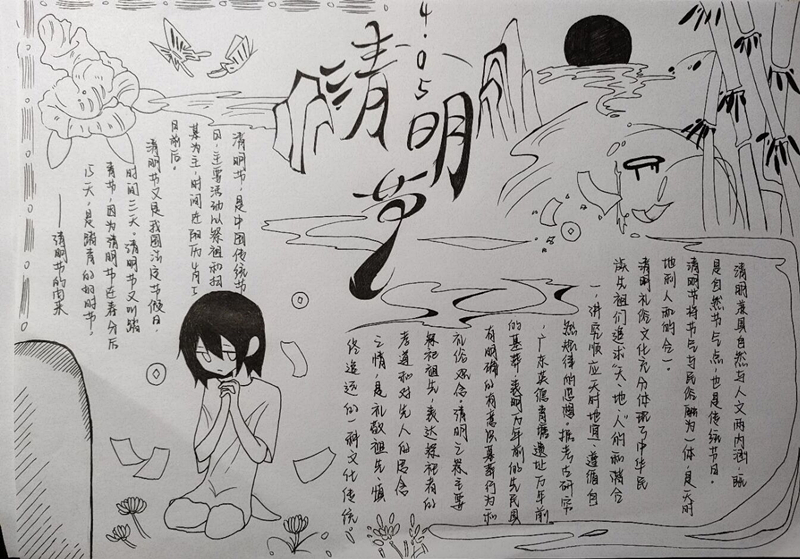 4.05
清明节
清明节，是中国传统节
日，主要活动以祭祖和扫
墓为主，时间近阳历4月5
日前后。
清明节又是我国法定节假日，
时间三天。清明节又叫踏
青节，因为清明节在春分后
15天，是踏青的好时节。
——清明节的由来
清明兼具自然与人文两内涵，既
是自然节气点，也是传统节日。
清明节将节气与民俗融为一体，是天时
地利人和的合一。
清明礼俗文化充分体现了中华民
族先祖们追求“天、地、人”的和谐合
一，讲究顺应天时地宜、遵循自
然规律的思想。据考古研究
，广东英德青塘遗址万年前
的墓葬，表明万年前的先民具
有明确的有意识墓葬行为和
礼俗观念。清明之祭主要
祭祀祖先，表达祭祀者的
孝道和对先人的思念
之情，是礼敬祖先、慎
终追远的一种文化传统。